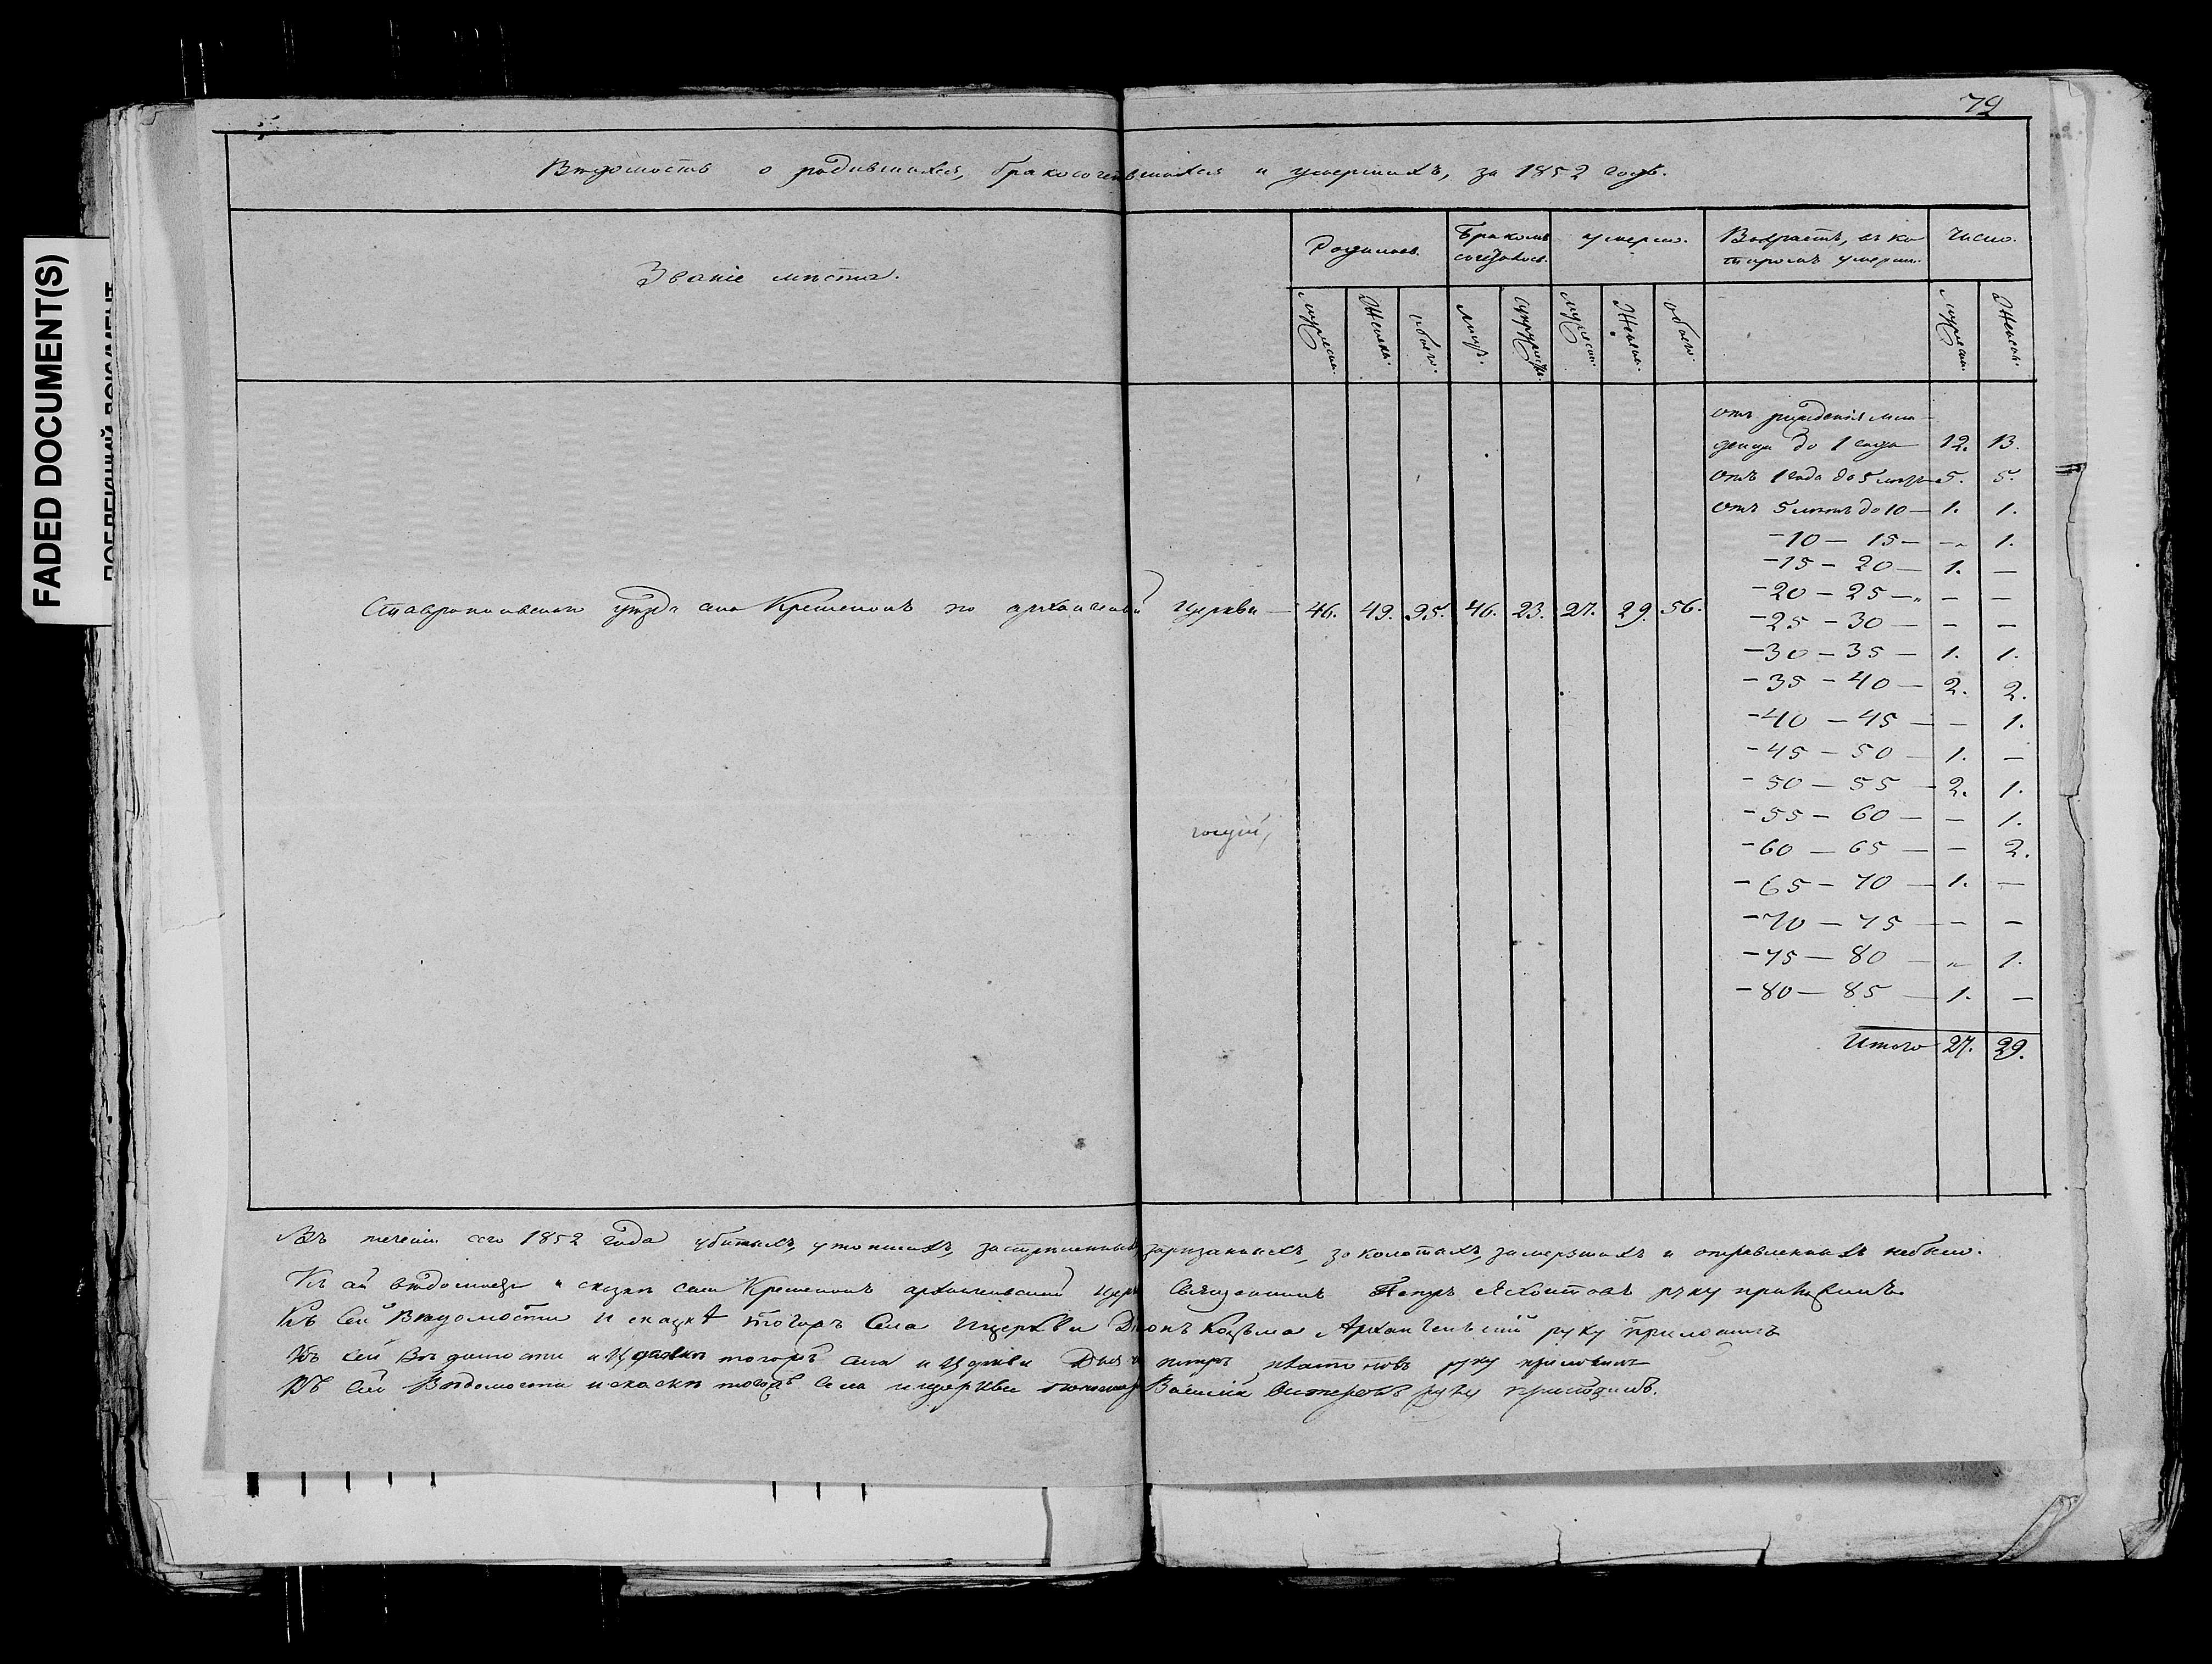 79
FADED DOCUMENT(S)
Вѣдомость о родившихся, бракосочетавшихся и умершихъ, за 1852 годъ.
Званіе мѣста.
Родилось.
Бракомъ сочеталось.
умерло.
Возрастъ, въ ко
торомъ умерли.
Число.
мужеска.
Женска.
обоего.
лицъ.
супружествъ.
мужеска.
Женска.
обоего.
мужеска.
Женска.
отъ рожденія мла
денца до 1 года 12. 13.
отъ 1 года до 5 лѣтъ 5. 5.
отъ 5 лѣтъ до 10 — 1. 1.
— 10 — 15 — „ 1.
— 15 — 20 — 1. —
— 20 — 25 — „ — —
— 25 — 30 — — —
— 30 — 35 — 1. 1.
— 35 — 40 — 2. 2.
— 40 — 45 — — 1.
— 45 — 50 — 1. —
— 50 — 55 — 2. 1.
— 55 — 60 — — 1.
— 60 — 65 — — 2.
— 65 — 70 — 1. —
— 70 — 75 — — —
— 75 — 80 — „ 1.
— 80 — 85 — 1. —
Итого 27. 29.
Ставропольскаго уѣзда села по церкви — 46. 49. 95. 46. 23. 27. 29. 56.
Въ теченіи сего 1852 года убитыхъ, утопшихъ, застрѣленныхъ, зарѣзанныхъ, заколотыхъ, замерзшихъ и отравленныхъ небыло.
Къ сей вѣдомости и сказкѣ села Священникъ Петръ руку приложилъ
Къ сей Вѣдомости и сказкѣ тогожъ Села и церкви Козьма Архангельскій руку приложилъ
Къ сей Вѣдомости и тогожъ села и церкви петръ руку приложилъ
Къ сей Вѣдомости и сказкѣ тогожъ села и церкви Василій руку приложилъ.